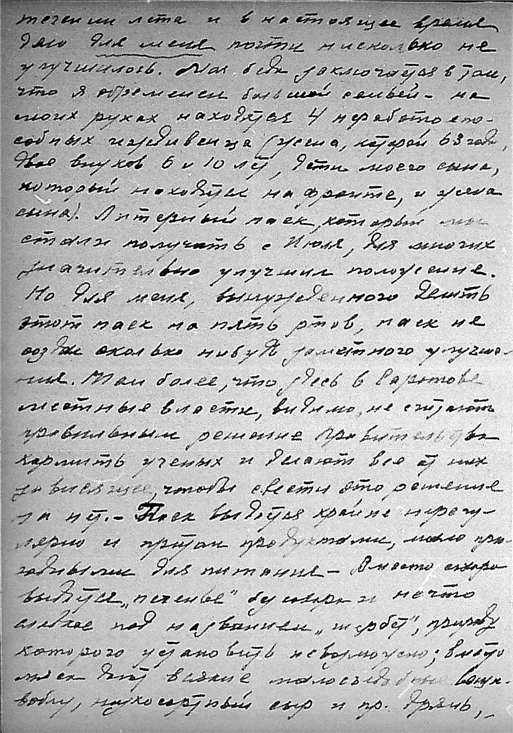 течении лета и в настоящее время
дело для меня почти нисколько не
улучшилось. Моя беда заключается в том,
что я обременен большой семьей - на
моих руках находятся 4 неработоспо-
собных иждивенца (жена, которой 63 года,
двое внуков 6 и 10 лет, дети моего сына,
который находится на фронте, и жена
сына). Литерный паек, который мы
стали получать с Июля, для многих
значительно улучшил положение.
Но для меня, вынужденного делить
этот паек на пять ртов, паек не
создал сколько нибудь заметного улучше-
ния. Тем более, что здесь в Саратове
местные власти, видимо, не считают
правильным решение правительства
кормить ученых и делают все от них
зависящее, чтобы свести это решение
на нет. - Паек выдается крайне нерегу-
лярно и притом продуктами, мало при-
годными для питания - Вместо сахара
выдается „печенье" без сахара и нечто
сладкое под названием „щербет", природу
которого установить невозможно; вместо
мяса дают всякие малосъедобные
воблу, низкосортный сыр и пр. дрянь,